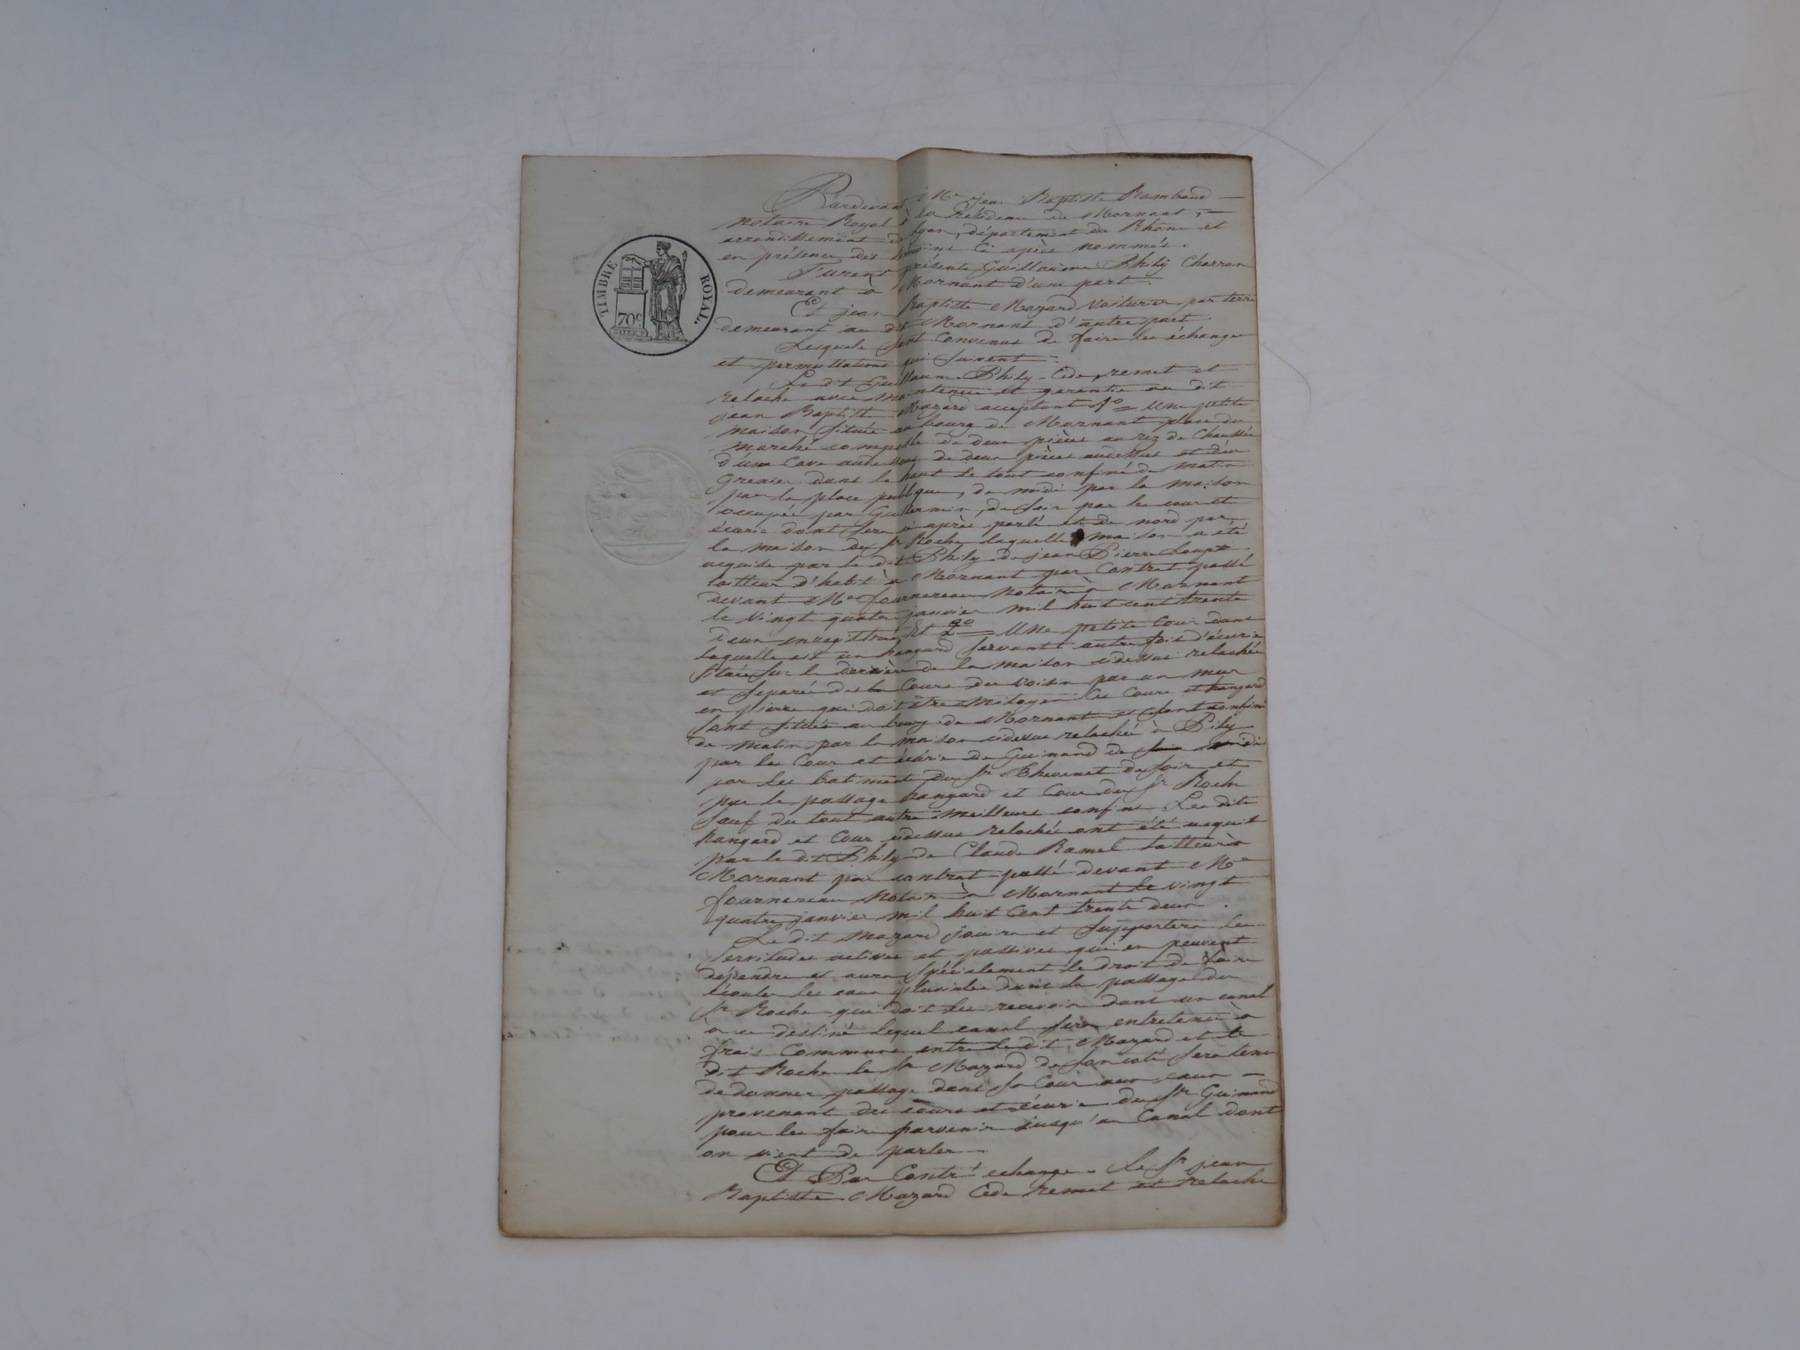 TIMBRE ROYAL.
70c
Pardevant Me jean Baptiste Rambaud
notaire Royal à la Résidence de Mornant,
arrondissement de Lyon, département du Rhône et
en présence des témoins ci après nommés.
Furent présents Guillaume Phily Charron
demeurant à Mornant d'une part.
Et jean Baptiste Mazard Voiturier par terre
demeurant au dit Mornant d'autre part.
Lesquels sont Convenus de faire les échange
et permuttations qui suivent.
Le dit Guillaume Phily Cède, remet et
relache avec maintenue et garantie au dit
jean Baptiste Mazard acceptant 1o = Une petite
maison située au bourg de Mornant place du
marché composée de deux pièces au rez de Chaussée
d'une Cave au dessous, de deux pièces audessus et d'un
Grenier dans le haut le tout confiné de matin
par la place publique, de midi par la maison
occupée par Guillermin, de soir par la cour et
écurie dont sera ci après parlé et de nord par
la maison du Sr Roche, laquelle maison a été
acquise par le dit Phily de jean Pierre
tailleur d'habit à Mornant par Contrat passé
devant Me fournereau Notaire à Mornant
le vingt quatre janvier mil huit cent trente
deux enregistré, Et 2o = Une petite Cour dans
laquelle est un hangard servant autre fois d'écurie
située sur le derrière de la maison cidessus relachée
et séparée de la Cour du voisin par un mur
en pierre qui doit être mitoyen. Ces Cour et hangard
sont situés au bourg de Mornant et sont confiné
de matin par la maison cidessus relachée à Phily
par les Cour et écurie de Guinand de midi
par les batiment du Sr Thevenet de soir et
par le passage hangard et Cour du Sr Roche
sauf du tout autre meilleurs confins. Les dits
hangard et Cour cidessus relachés ont été acquit
par le dit Phily de Claude Ramel tailleur à
Mornant par contrat passé devant Me
fournereau Notaire à Mornant le vingt
quatre janvier mil huit Cent trente deux.
Le dit Mazard jouira et supportera les
servitudes actives et passives qui en peuvent
dépendre et aura spécialement le droit de faire
écouler les eaux pluviales dans le passage du
Sr Roche qui doit les recevoir dans un canal
à ce destiné lequel canal sera entretenu à
frais Communs entre le dit Mazard et le
dit Roche le Sr Mazard de son coté sera tenu
de donner passage dans sa Cour aux eaux
provenant des cours et écurie du Sr Guinand
pour les faire parvenir jusqu'au Canal dont
on vient de parler.
Et Par Contr'échange Le Sr jean
Baptiste Mazard Cède remet et relache